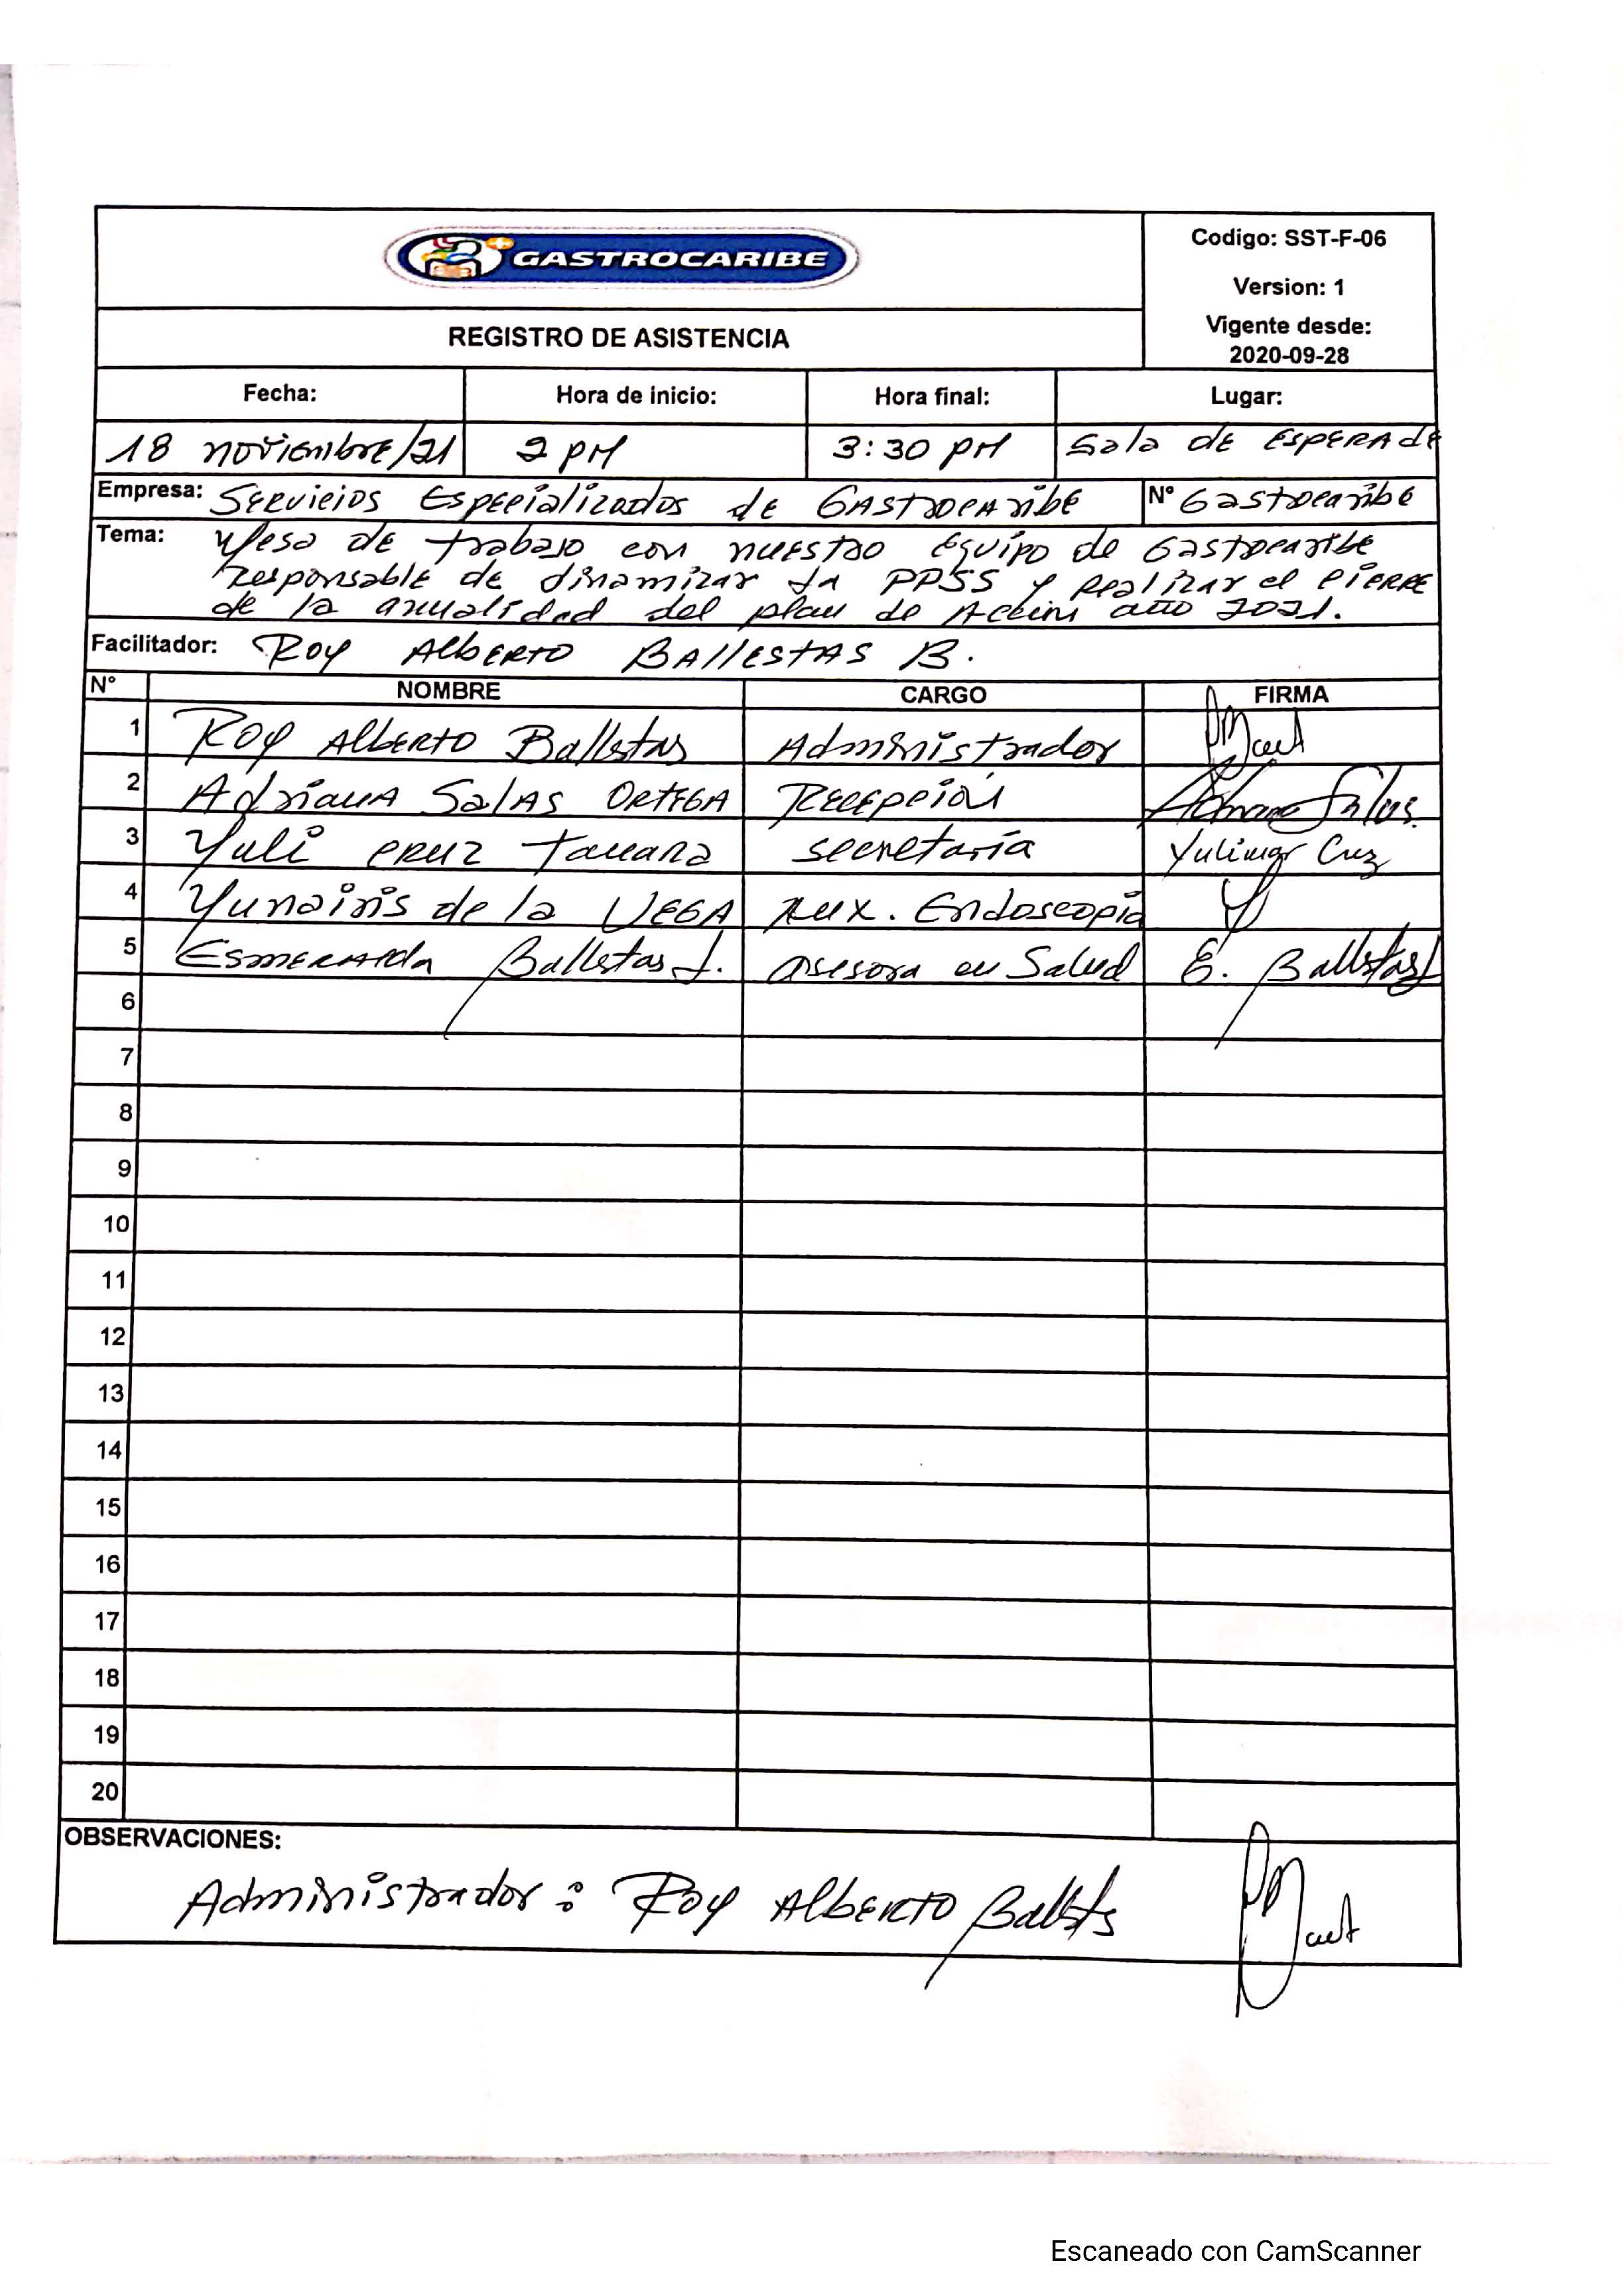 GASTROCARIBE
Codigo: SST-F-06
Version: 1
REGISTRO DE ASISTENCIA
Vigente desde:
2020-09-28
Fecha: Hora de inicio: Hora final: Lugar:
18 noviembre/21 2 PM 3:30 PM Sala de ESPERA de
Empresa: Servicios Especializados de GASTROCARibE N° GastrocaribE
Tema: Mesa de trabajo con nuestro Equipo de Gastrocaribe
responsable de dinamizar la PPSS y realizar el CIERRE
de la anualidad del plan de Accion año 2021.
Facilitador: Roy Alberto BAllestAS B.
N° NOMBRE CARGO FIRMA
1 Roy Alberto Ballestas Administrador
2 Adriana Salas Ortega Recepción Adriana Salas.
3 Yuli cruz Taucara secretaría Yulimar Cruz
4 Yunairis de la VEGA Aux. Endoscopia
5 Esmeralda Ballestas J. asesora en Salud E. Ballestas J
6
7
8
9
10
11
12
13
14
15
16
17
18
19
20
OBSERVACIONES:
Administrador: Roy Alberto Ballestas
Escaneado con CamScanner